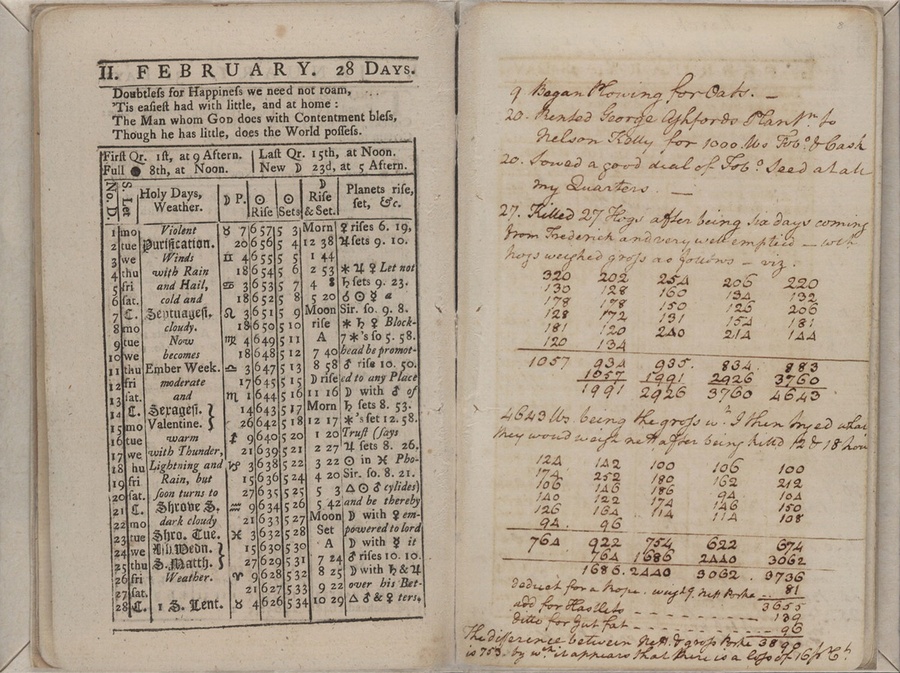 II. FEBRUARY. 28 DAYS.
Doubtleſs for Happineſs we need not roam,
'Tis eaſieſt had with little, and at home :
The Man whom GOD does with Contentment bleſs,
Though he has little, does the World poſſeſs.
Firſt Qr. 1ſt, at 9 Aftern. Laſt Qr. 15th, at Noon.
Full ● 8th, at Noon. New ☽ 23d, at 5 Aftern.
No. D. S. Let Holy Days, Weather. ☽ P. ☉ Riſe ☉ Sets ☽ Riſe & Set. Planets riſe, ſet, &c.
1 mo Violent ♉ 7 6 57 5 3 Morn ♀ riſes 6. 19,
2 tue Purification. 20 6 56 5 4 12 38 ♃ ſets 9. 10.
3 we Winds ♊ 4 6 55 5 5 1 44
4 thu with Rain 18 6 54 5 6 2 53 ⚹ ♃ ♀ Let not
5 fri and Hail, ♋ 3 6 53 5 7 4 8 ♄ ſets 9. 23.
6 ſat. cold and 18 6 52 5 8 5 20 ☌ ☉ ☿
7 C. Septuageſi. ♌ 3 6 51 5 9 Moon Sir. ſo. 9. 8.
8 mo cloudy. 18 6 50 5 10 riſe ⚹ ♄ ♀ Block-
9 tue Now ♍ 4 6 49 5 11 A 7 *'s ſo 5. 58.
10 we becomes 18 6 48 5 12 7 40 head be promot-
11 thu Ember Week. ♎ 3 6 47 5 13 8 58 ♂ riſe 10. 50.
12 fri moderate 17 6 45 5 15 ☽ riſe ed to any Place
13 ſat. and ♏ 1 6 44 5 16 11 16 ☽ with ♂ of
14 C. Sexageſi. 14 6 43 5 17 Morn ♄ ſets 8. 53.
15 mo Valentine. 26 6 42 5 18 12 17 *'s ſet 12. 58.
16 tue warm ♐ 9 6 40 5 20 1 20 Truſt (ſays
17 we with Thunder, 21 6 39 5 21 2 27 ♃ ſets 8. 26.
18 thu Lightning and ♑ 3 6 38 5 22 3 22 ☉ in ♓ Pho-
19 fri Rain, but 15 6 36 5 24 4 20 Sir. ſo. 8. 21.
20 ſat. ſoon turns to 27 6 35 5 25 5 3 △ ☉ ♂ cylides)
21 C. Shrove S. ♒ 9 6 34 5 26 5 42 and be thereby
22 mo dark cloudy 21 6 33 5 27 Moon ☽ with ♀ em-
23 tue Shro. Tue. ♓ 3 6 32 5 28 Set powered to lord
24 we Aſh Wedn. 15 6 30 5 30 A ☽ with ☿ it
25 thu S. Matth. 27 6 29 5 31 7 24 ♂ riſes 10. 10.
26 fri Weather. ♈ 9 6 28 5 32 8 25 ☽ with ♄ & ♃
27 ſat. 21 6 27 5 33 9 22 over his Bet-
28 C. 1 S. Lent. ♉ 4 6 26 5 34 10 29 △ ♂ & ♀ ters.
9 Began Plowing for Oats. —
20. Rented George Ashfords Plantn to
Nelson Kelly for 1000 lbs Tobo & Cash
20. Sowed a good deal of Tobo Seed at all
my Quarters. —
27. Killed 27 Hogs after being six days coming
from Frederick and very well emptied — wch
hogs weighed gross as follows — viz.
320 202 254 206 220
130 128 160 134 132
178 178 150 126 206
128 172 131 154 181
181 120 240 214 144
120 134
1057 934 935. 834. 883
1057 1991 2926 3760
1991 2926 3760 4643
4643 lbs. being the gross wt. I then tryed what
they would weigh nett after being killed 12 & 18 hour
124 142 100 106 100
174 252 180 162 212
106 146 186 94 104
140 122 174 146 150
126 164 114 114 108
94 96
764 922 754 622 674
764 1686 2440 3062
1686. 2440 3062. 3736
deduct for a Rope. weighg. Nett Porke .. 81
3655
add for Haslets - - - - 139
ditto for Gut fat - - - - 96
3890
The difference between Nett. & gross Porke
is 753. by wch it appears that there is a loss of 16 pr Ct.